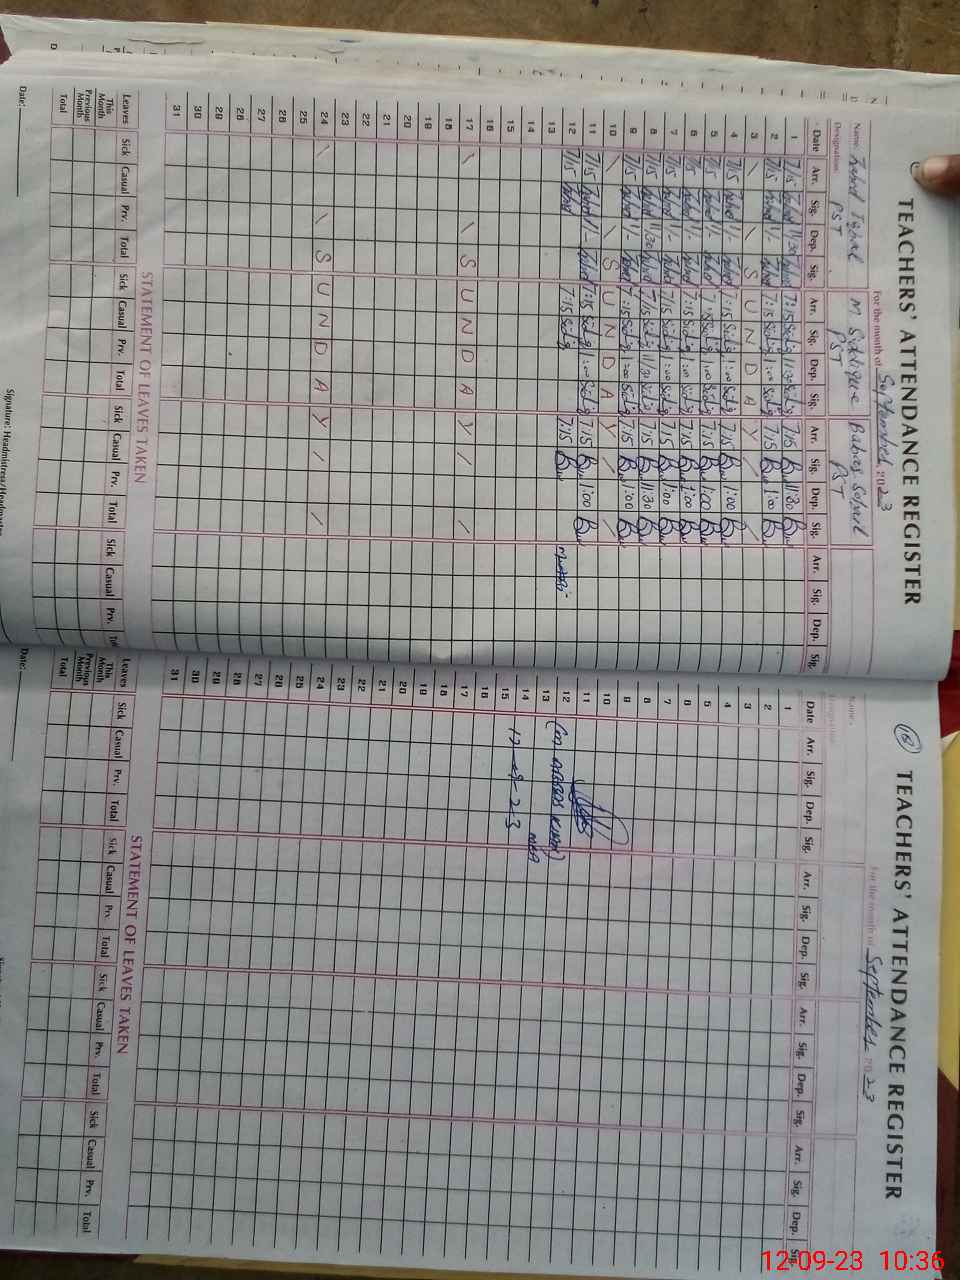 TEACHERS' ATTENDANCE REGISTER
For the month of September 2023
Name. Zahid Iqbal M. Siddique Babar Sohail
Designation PST PST PST
Date Arr. Sig. Dep. Sig. Arr. Sig. Dep. Sig. Arr. Sig. Dep. Sig. Arr. Sig. Dep. Sig.
1 7/15 Zahid 11/30 Zahid 7:15 11:30 7:15 11:30
2 7/15 Zahid 1/- Zahid 7:15 1:00 7:15 1:00
3 \ \ S U N D A Y / /
4 7/15 Zahid 1/- Zahid 7:15 1:00 7:15 1:00
5 7/15 Zahid 1/- Zahid 7:15 1:00 7:15 1:00
6 7/15 Zahid 1/- Zahid 7:15 1:00 7:15 1:00
7 7/15 Zahid 1/- Zahid 7/15 1:00 7:15 1:00
8 7/15 Zahid 11/30 Zahid 7/15 11/30 7:15 11:30
9 7/15 Zahid 1/- Zahid 7:15 1:00 7:15 1:00
10 \ \ S U N D A Y / /
11 7/15 Zahid 1/- Zahid 7:15 1:00 7:15 1:00
12 7/15 Zahid 7:15 7:15
13
14
15
16
17 \ \ S U N D A Y / /
18
19
20
21
22
23
24 \ \ S U N D A Y / /
25
26
27
28
29
30
31
STATEMENT OF LEAVES TAKEN
Leaves Sick Casual Prv. Total Sick Casual Prv. Total Sick Casual Prv. Total Sick Casual Prv.
This Month
Previous Month
Total
Date:
Signature: Headmistress/Headmaster
TEACHERS' ATTENDANCE REGISTER
For the month of September 2023
Name.
Designation
Date Arr. Sig. Dep. Sig. Arr. Sig. Dep. Sig. Arr. Sig. Dep. Sig. Arr. Sig. Dep. Sig.
1
2
3
4
5
6
7
8
9
10
11
12
13
14 MEA
15
16
17
18
19
20
21
22
23
24
25
26
27
28
29
30
31
STATEMENT OF LEAVES TAKEN
Leaves Sick Casual Prv. Total Sick Casual Prv. Total Sick Casual Prv. Total Sick Casual Prv. Total
This Month
Previous Month
Total
Date:
12-09-23 10:36